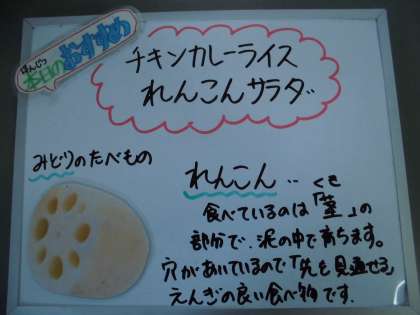 ほんじつ
本日のおすすめ
チキンカレーライス
れんこんサラダ
みどりのたべもの
れんこん‥
くき
食べているのは「茎」の
部分で、泥の中で育ちます。
穴があいているので「先を見通せる」
えんぎの良い食べ物です.